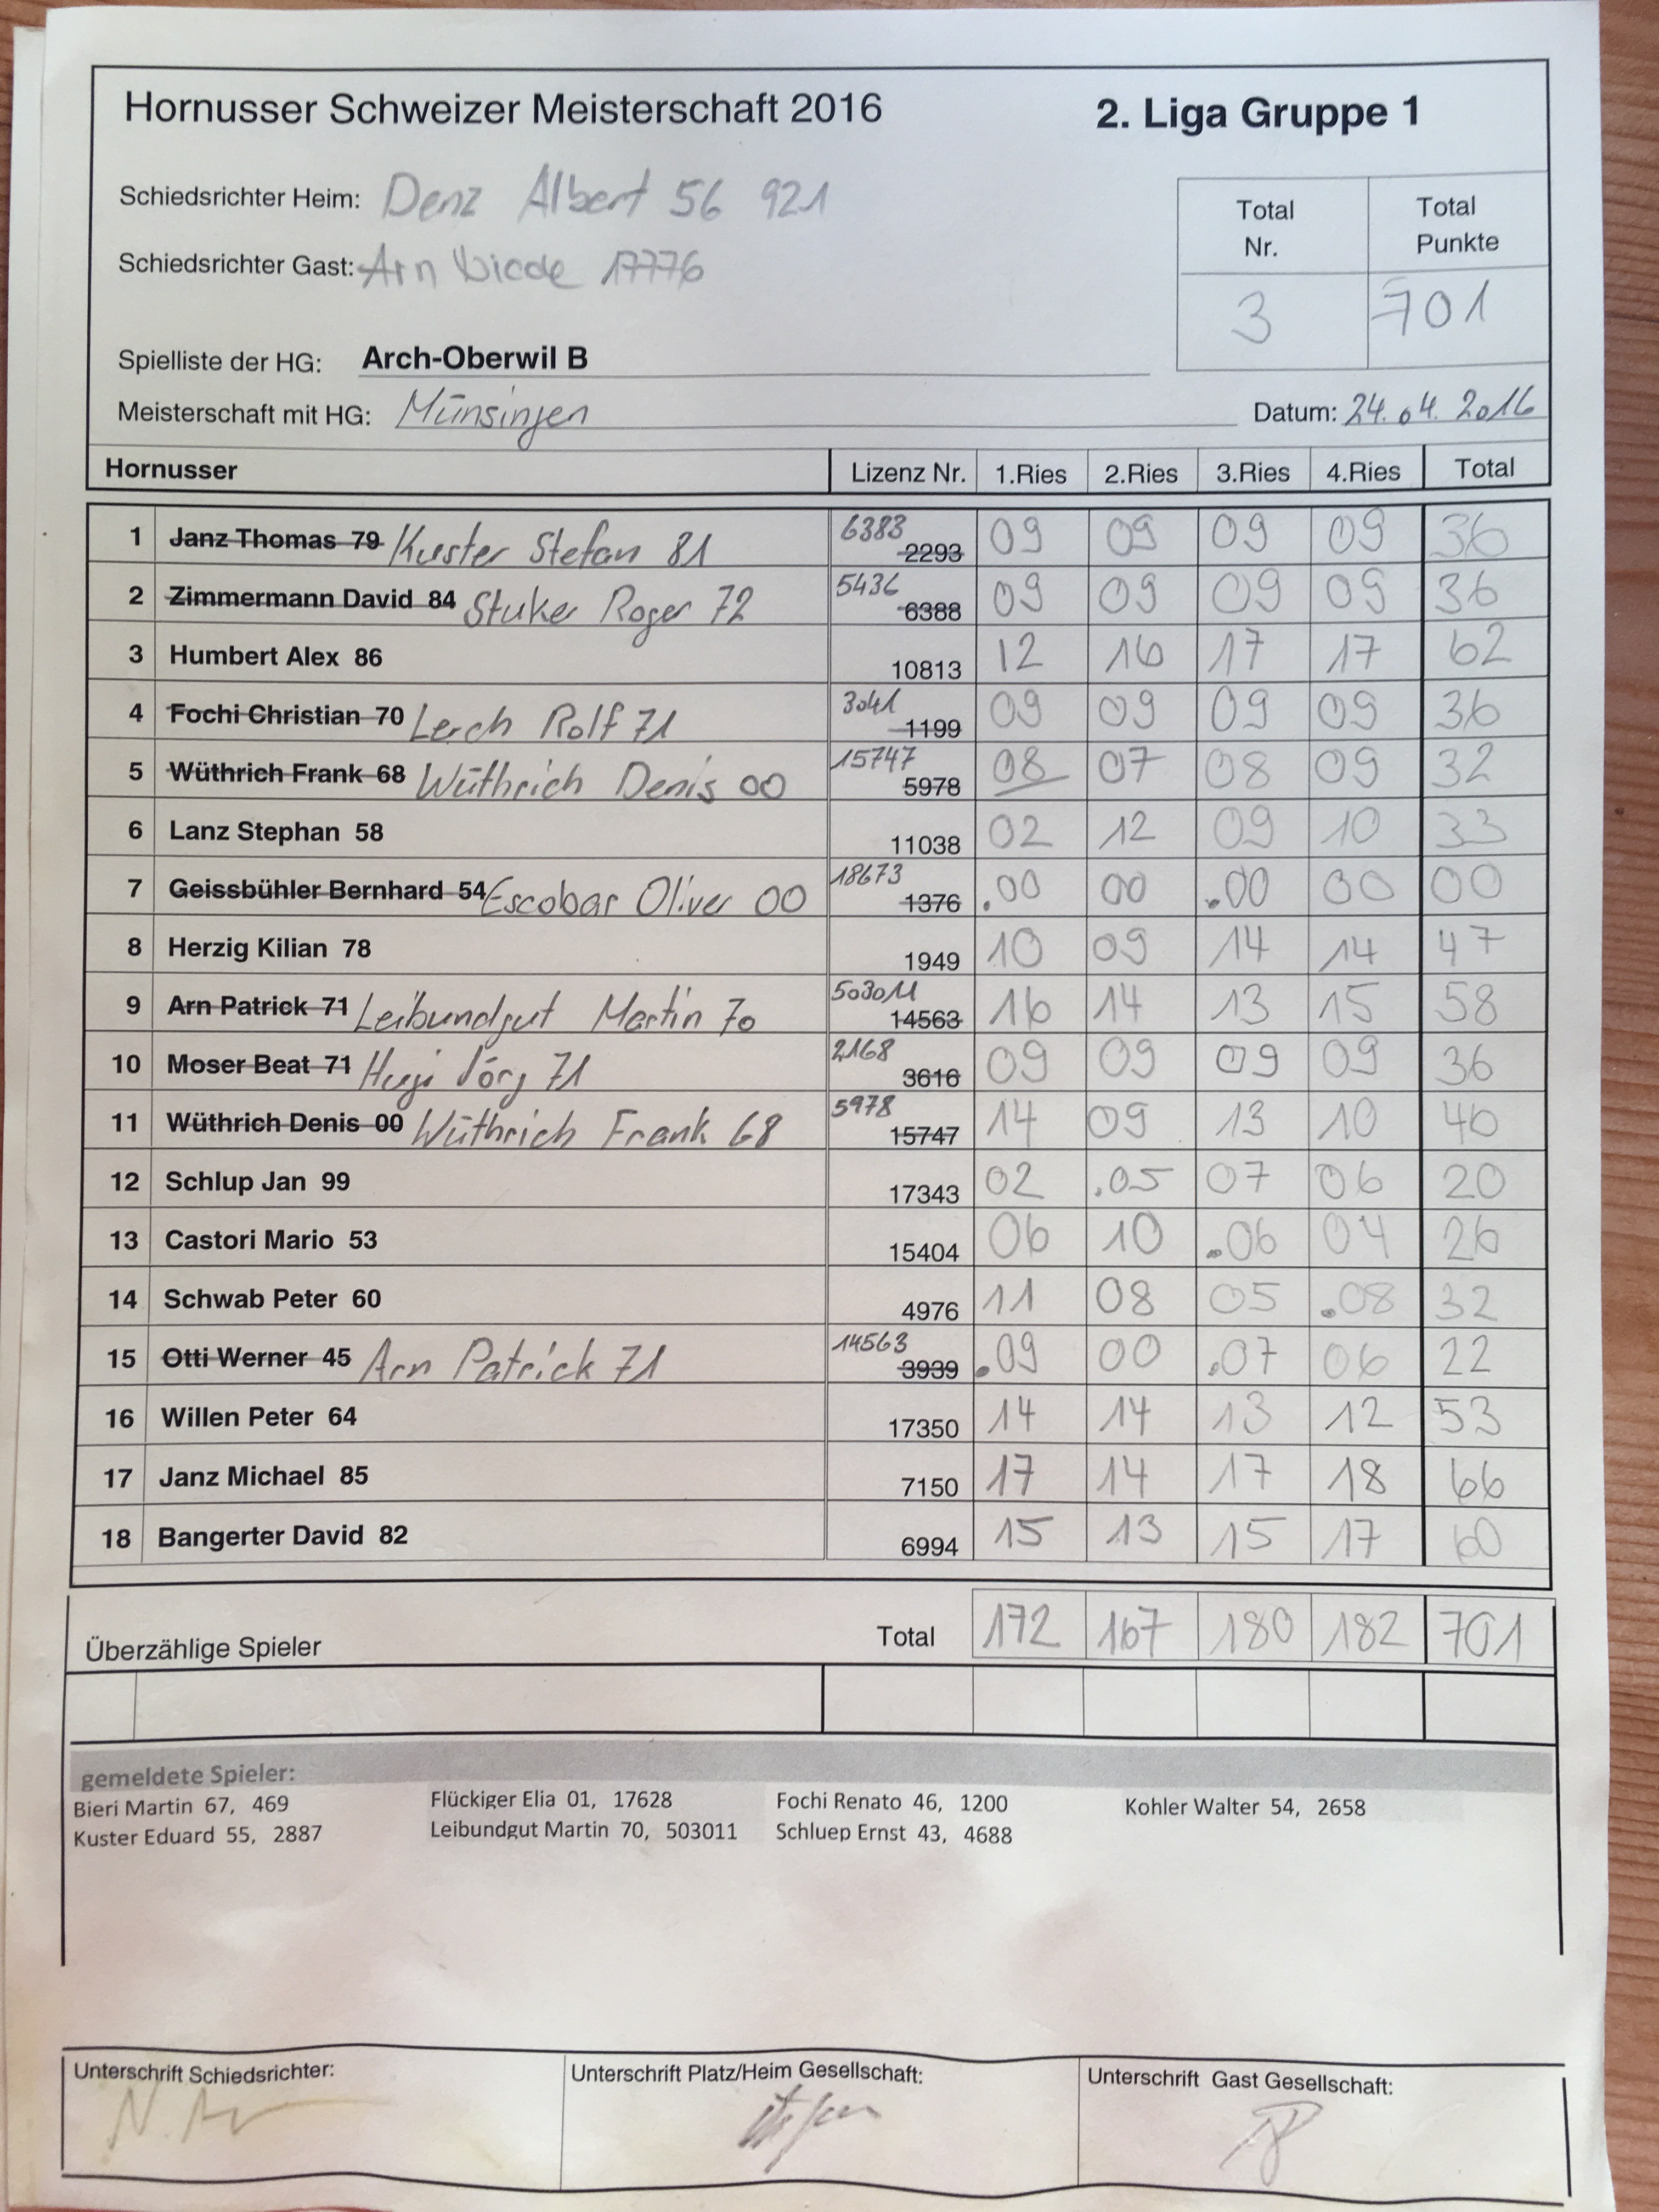 Hornusser Schweizer Meisterschaft 2016 2. Liga Gruppe 1
Schiedsrichter Heim: Denz Albert 56 921
Schiedsrichter Gast: Arn 17776
Total Nr. Total Punkte
3 701
Spielliste der HG: Arch-Oberwil B
Meisterschaft mit HG: Münsingen Datum: 24.04.2016
Hornusser Lizenz Nr. 1.Ries 2.Ries 3.Ries 4.Ries Total
1 Janz Thomas 79 Kuster Stefan 81 6383 2293 09 09 09 09 36
2 Zimmermann David 84 Stuker Roger 72 5436 6388 09 09 09 09 36
3 Humbert Alex 86 10813 12 16 17 17 62
4 Fochi Christian 70 Lerch Rolf 71 3041 1199 09 09 09 09 36
5 Wüthrich Frank 68 Wüthrich Denis 00 15747 5978 08 07 08 09 32
6 Lanz Stephan 58 11038 02 12 09 10 33
7 Geissbühler Bernhard 54 Escobar Oliver 00 18673 1376 .00 00 .00 00 00
8 Herzig Kilian 78 1949 10 09 14 14 47
9 Arn Patrick 71 Leibundgut Martin 70 503011 14563 16 14 13 15 58
10 Moser Beat 71 Hugi Jörg 71 2168 3616 09 09 09 09 36
11 Wüthrich Denis 00 Wüthrich Frank 68 5978 15747 14 09 13 10 46
12 Schlup Jan 99 17343 02 .05 07 06 20
13 Castori Mario 53 15404 06 10 .06 04 26
14 Schwab Peter 60 4976 11 08 05 .08 32
15 Otti Werner 45 Arn Patrick 71 14563 3939 .09 00 .07 06 22
16 Willen Peter 64 17350 14 14 13 12 53
17 Janz Michael 85 7150 17 14 17 18 66
18 Bangerter David 82 6994 15 13 15 17 60
Überzählige Spieler Total 172 167 180 182 701
gemeldete Spieler:
Bieri Martin 67, 469 Flückiger Elia 01, 17628 Fochi Renato 46, 1200 Kohler Walter 54, 2658
Kuster Eduard 55, 2887 Leibundgut Martin 70, 503011 Schluep Ernst 43, 4688
Unterschrift Schiedsrichter: Unterschrift Platz/Heim Gesellschaft: Unterschrift Gast Gesellschaft: